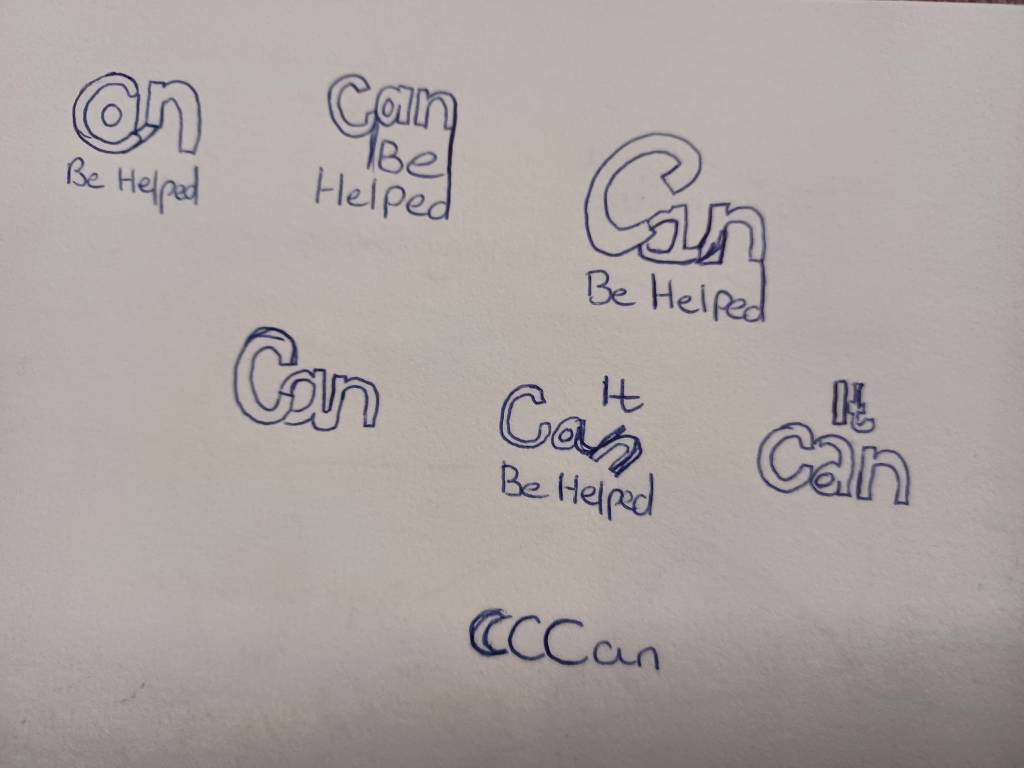 Can
Be Helped
Can
Be
Helped
Can
Be Helped
Can
It
Can
Be Helped
It
Can
CCCCan